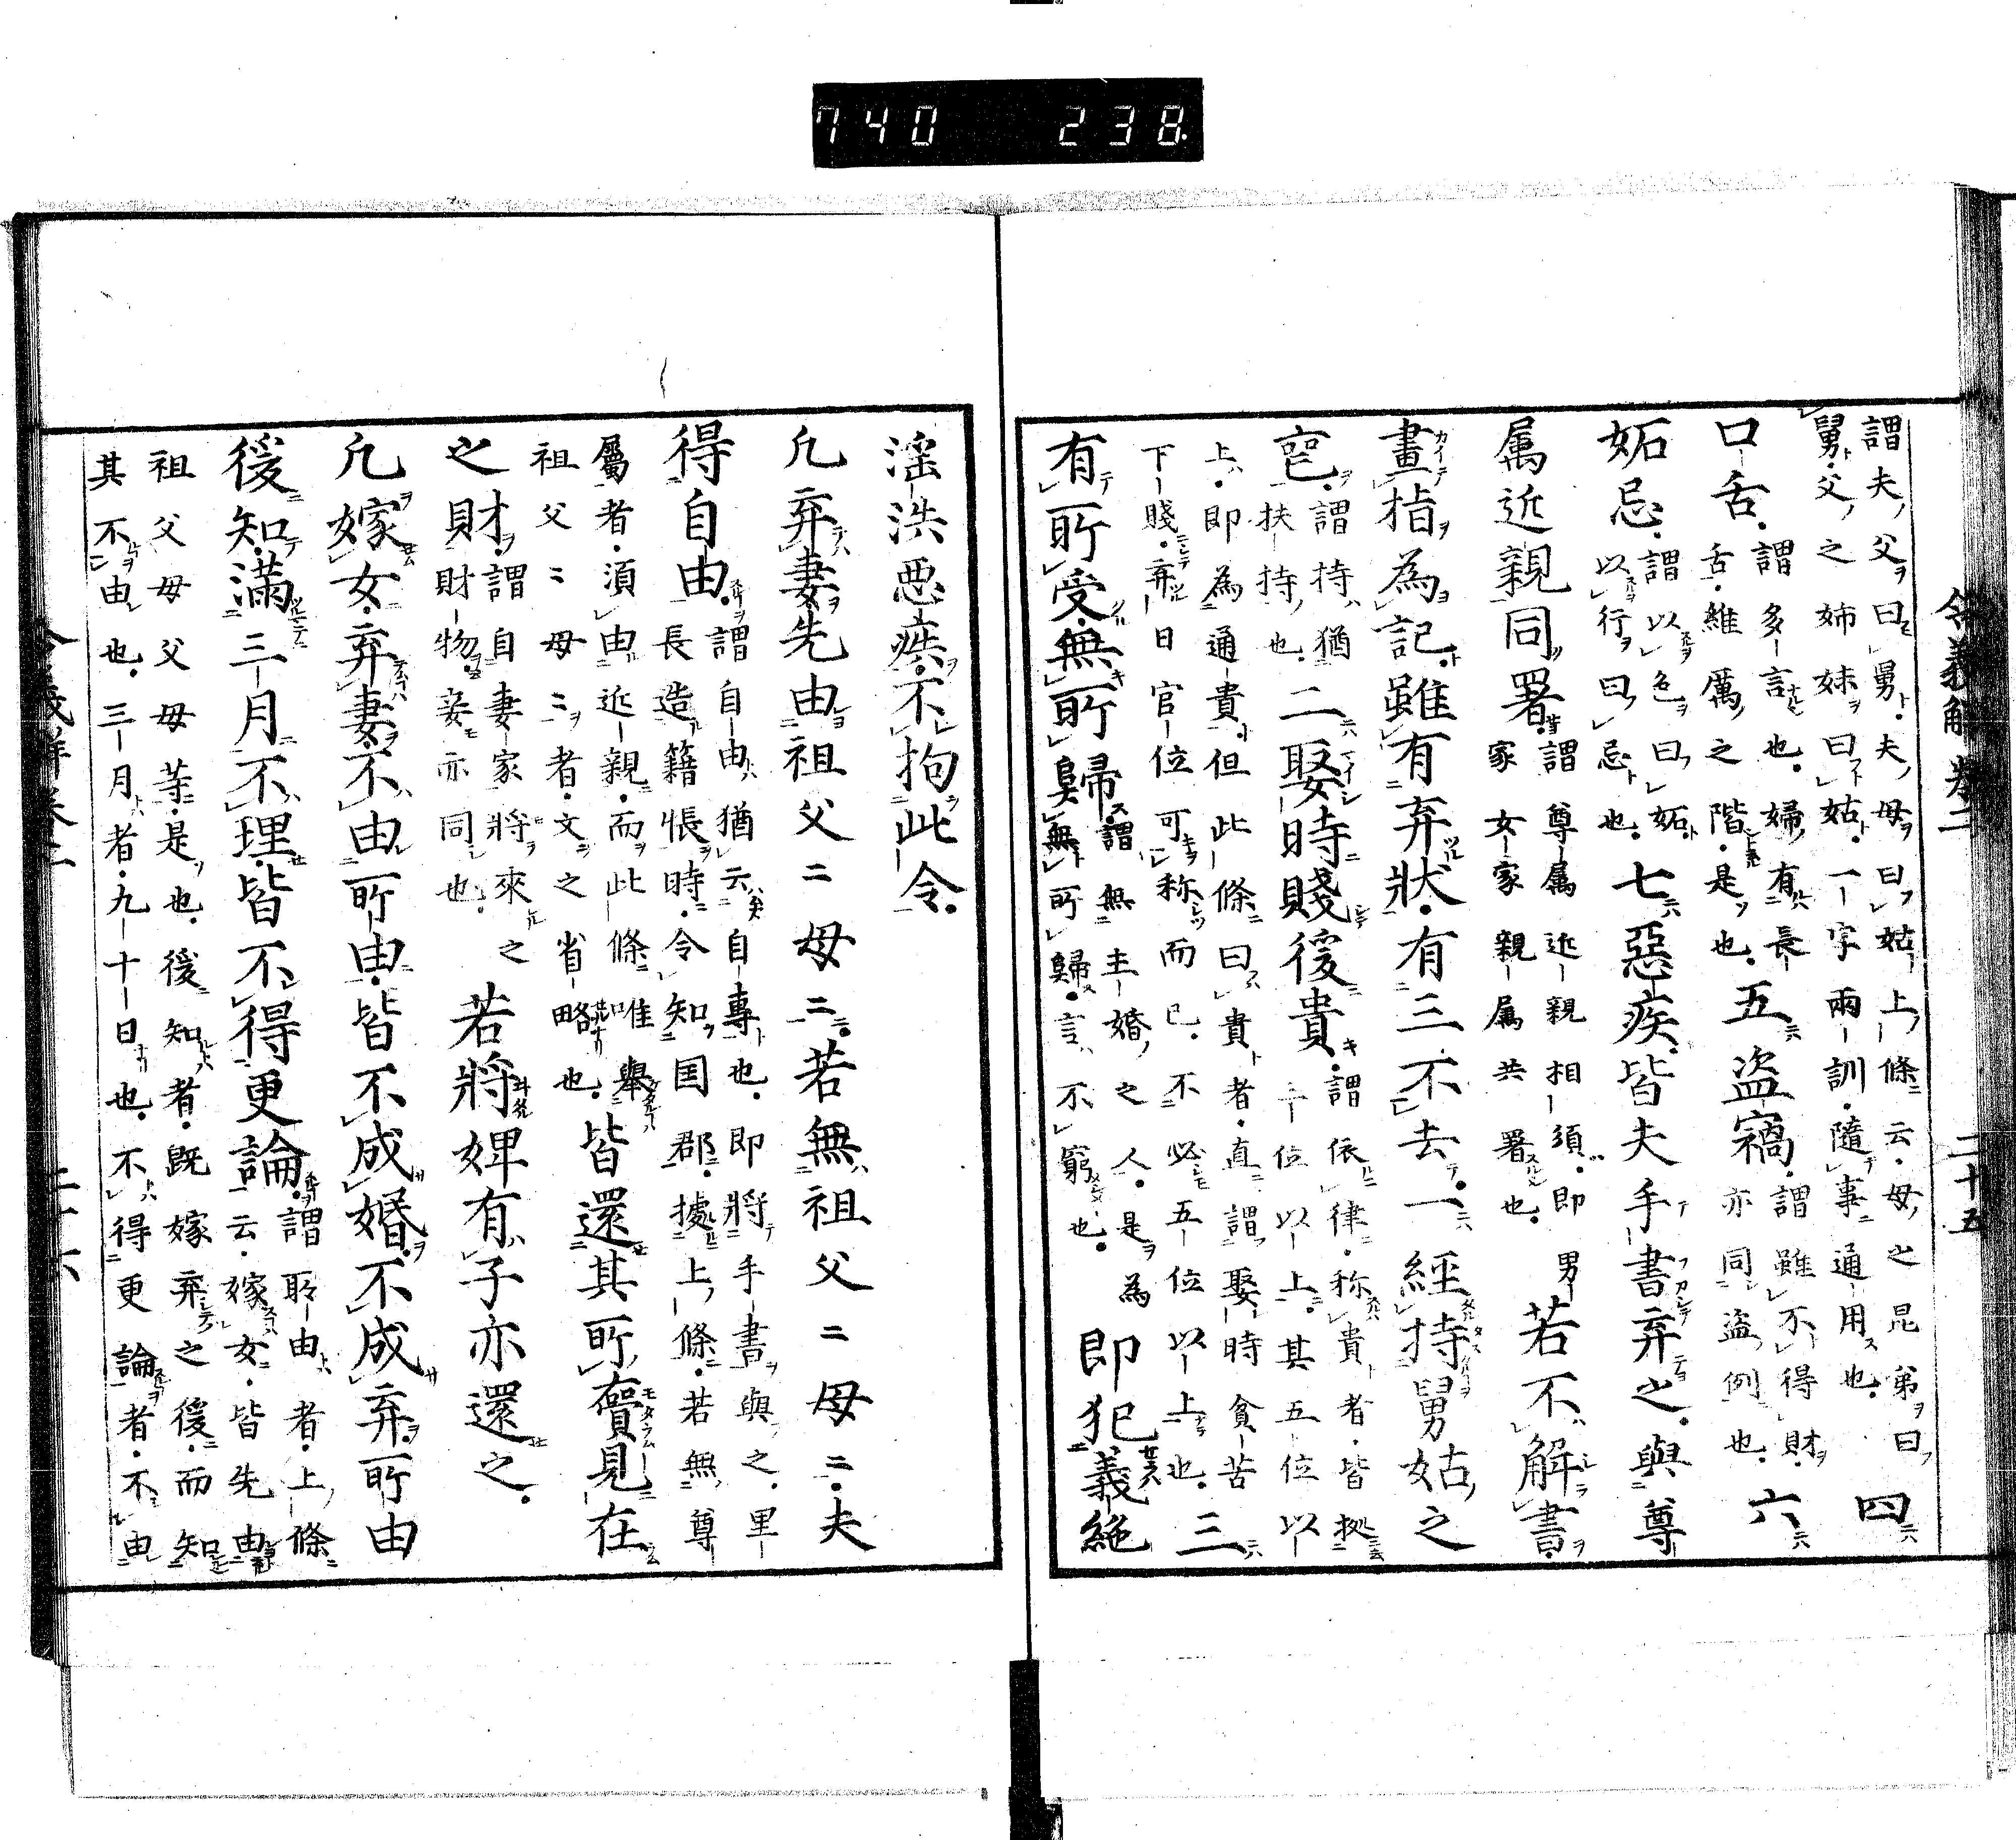 740 238
令義解 卷二 二十五
謂夫父曰舅夫母曰姑上條云母之昆弟曰
舅父之姉妹曰姑一字兩訓隨事通用也 四
口舌 謂多言也婦有長舌維厲之階是也 五盗竊 謂雖不得財亦同盗例也 六
妬忌 謂以色曰妬以行曰忌也 七惡疾皆夫手書弃之與尊
属近親同署 謂尊属近親相須即男家女家親属共署也 若不解書
畫指為記雖有弃狀有三不去一經持舅姑之
謂持猶扶持也 二娶時賤後貴 謂依律称貴者皆據三位以上其五位以
上即為通貴但此條曰貴者直謂娶時貧苦
下賤弃日官位可称而已不必五位以上也 三
有所受無所歸 謂無主婚之人是為無所歸言不窮也 即犯義絶
淫泆惡疾不拘此令
凡弃妻先由祖父二母二若無祖父二母二夫
得自由 謂自由猶云自專也即將手書與之里長造籍帳時令知国郡據上條若無尊
屬者須由近親而此條唯舉祖父二母二者文之省略也 皆還其所賷見在
之財 謂自妻家將來之財物妾亦同也 若將婢有子亦還之
凡嫁女弃妻不由所由皆不成婚不成弃所由
後知滿三月不理皆不得更論 謂所由者上條云嫁女皆先由
祖父母父母等是也後知者既嫁弃之後而知
其不由也三月者九十日也不得更論者不由
令義解卷二 二十六